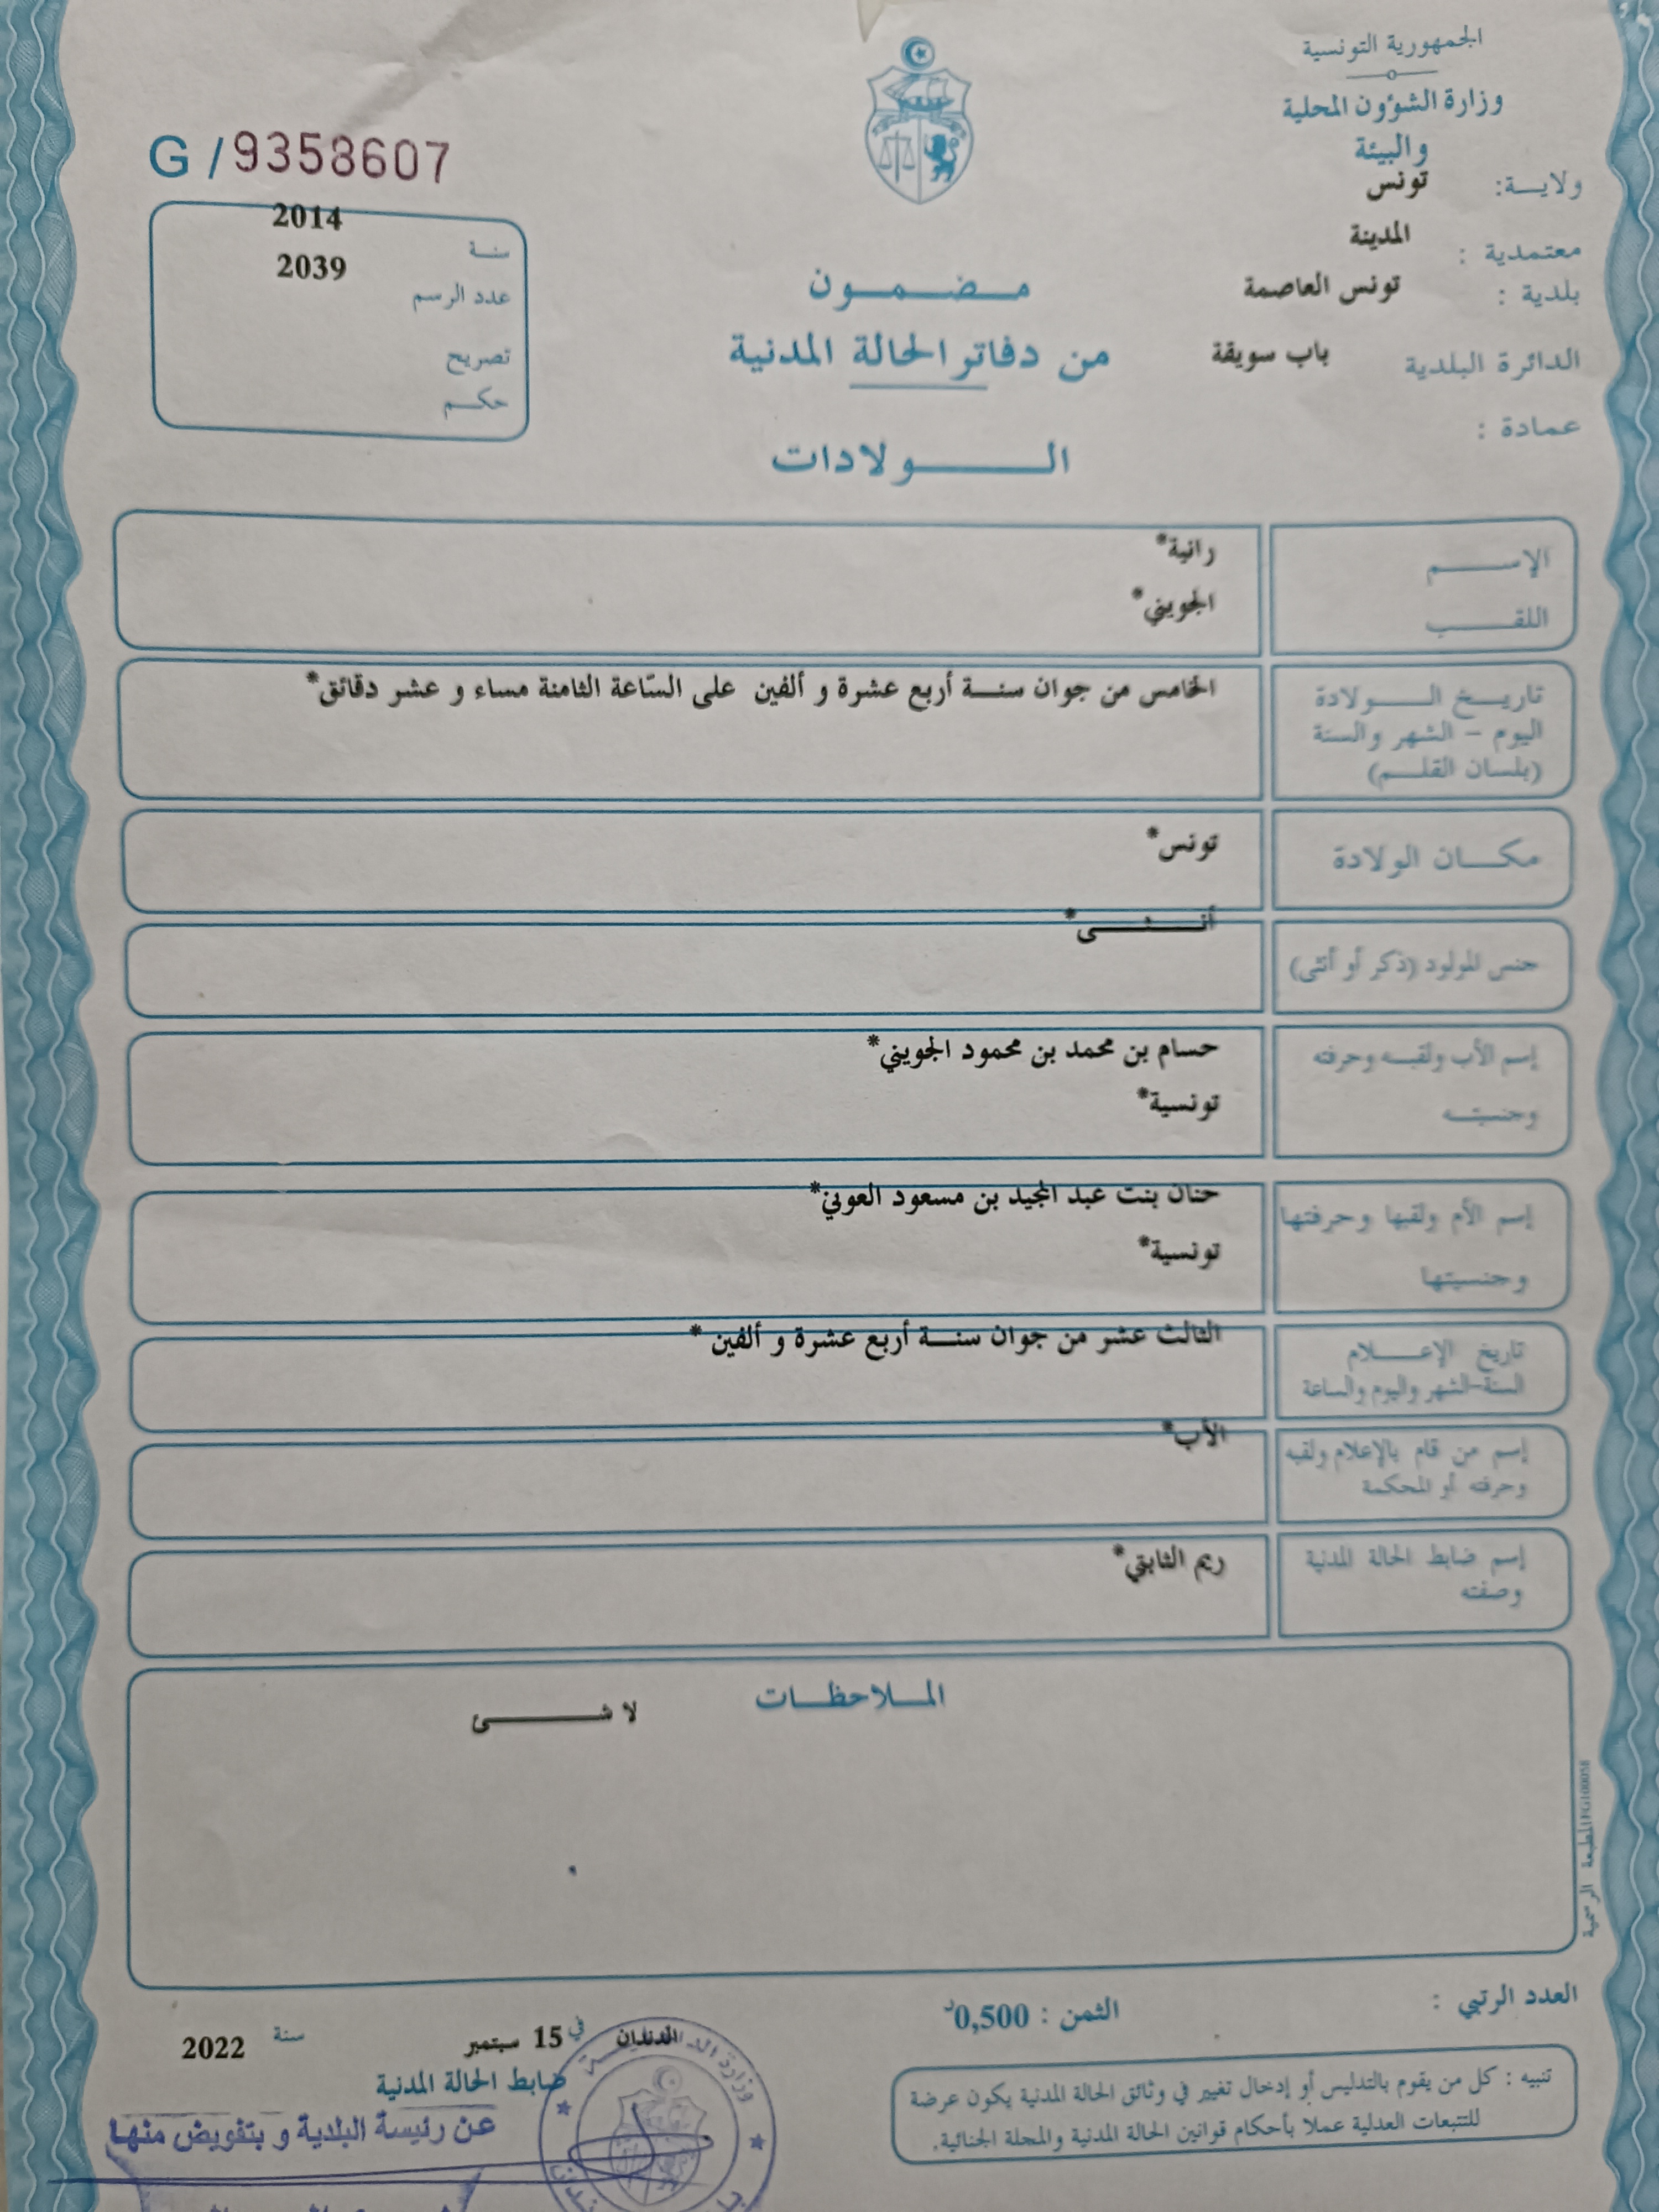 الجمهورية التونسية
وزارة الشؤون المحلية
والبيئة
ولايـــة: تونس
معتمدية : المدينة
بلدية : تونس العاصمة
الدائرة البلدية باب سويقة
عمادة :
G / 9358607
سنـة 2014
عدد الرسم 2039
تصريح
حكـــم
مـــضـــمـــون
من دفاتر الحالة المدنية
الـــــــولادات
الإســـــم رانية*
اللقـــــب الجويني*
تاريـــخ الـــــولادة الخامس من جوان سنـــة أربع عشرة و ألفين على السّاعة الثامنة مساء و عشر دقائق*
اليوم - الشهر والسنة
(بلسان القلـــم)
مكـــان الولادة تونس*
جنس المولود (ذكر أو أنثى) أنـــــثـــــى*
إسم الأب ولقبـــه وحرفته حسام بن محمد بن محمود الجويني*
وجنسيتـــه تونسية*
إسم الأم ولقبها وحرفتها حنان بنت عبد المجيد بن مسعود العوني*
وجنسيتها تونسية*
تاريخ الإعـــــلام الثالث عشر من جوان سنـــة أربع عشرة و ألفين *
السنة-الشهر واليوم والساعة
إسم من قام بالإعلام ولقبه الأب*
وحرفته أو المحكمة
إسم ضابط الحالة المدنية ريم الثابتي*
وصفته
المـــلاحظـــات
لا شـــــــئ
المطبعة الرسمية FG100058
العدد الرتبي :
الثمن : 0,500د
الدندان في 15 سبتمبر سنة 2022
ضابط الحالة المدنية
عن رئيسة البلدية و بتفويض منها
تنبيه : كل من يقوم بالتدليس أو إدخال تغيير في وثائق الحالة المدنية يكون عرضة
للتتبعات العدلية عملا بأحكام قوانين الحالة المدنية والمجلة الجنائية.